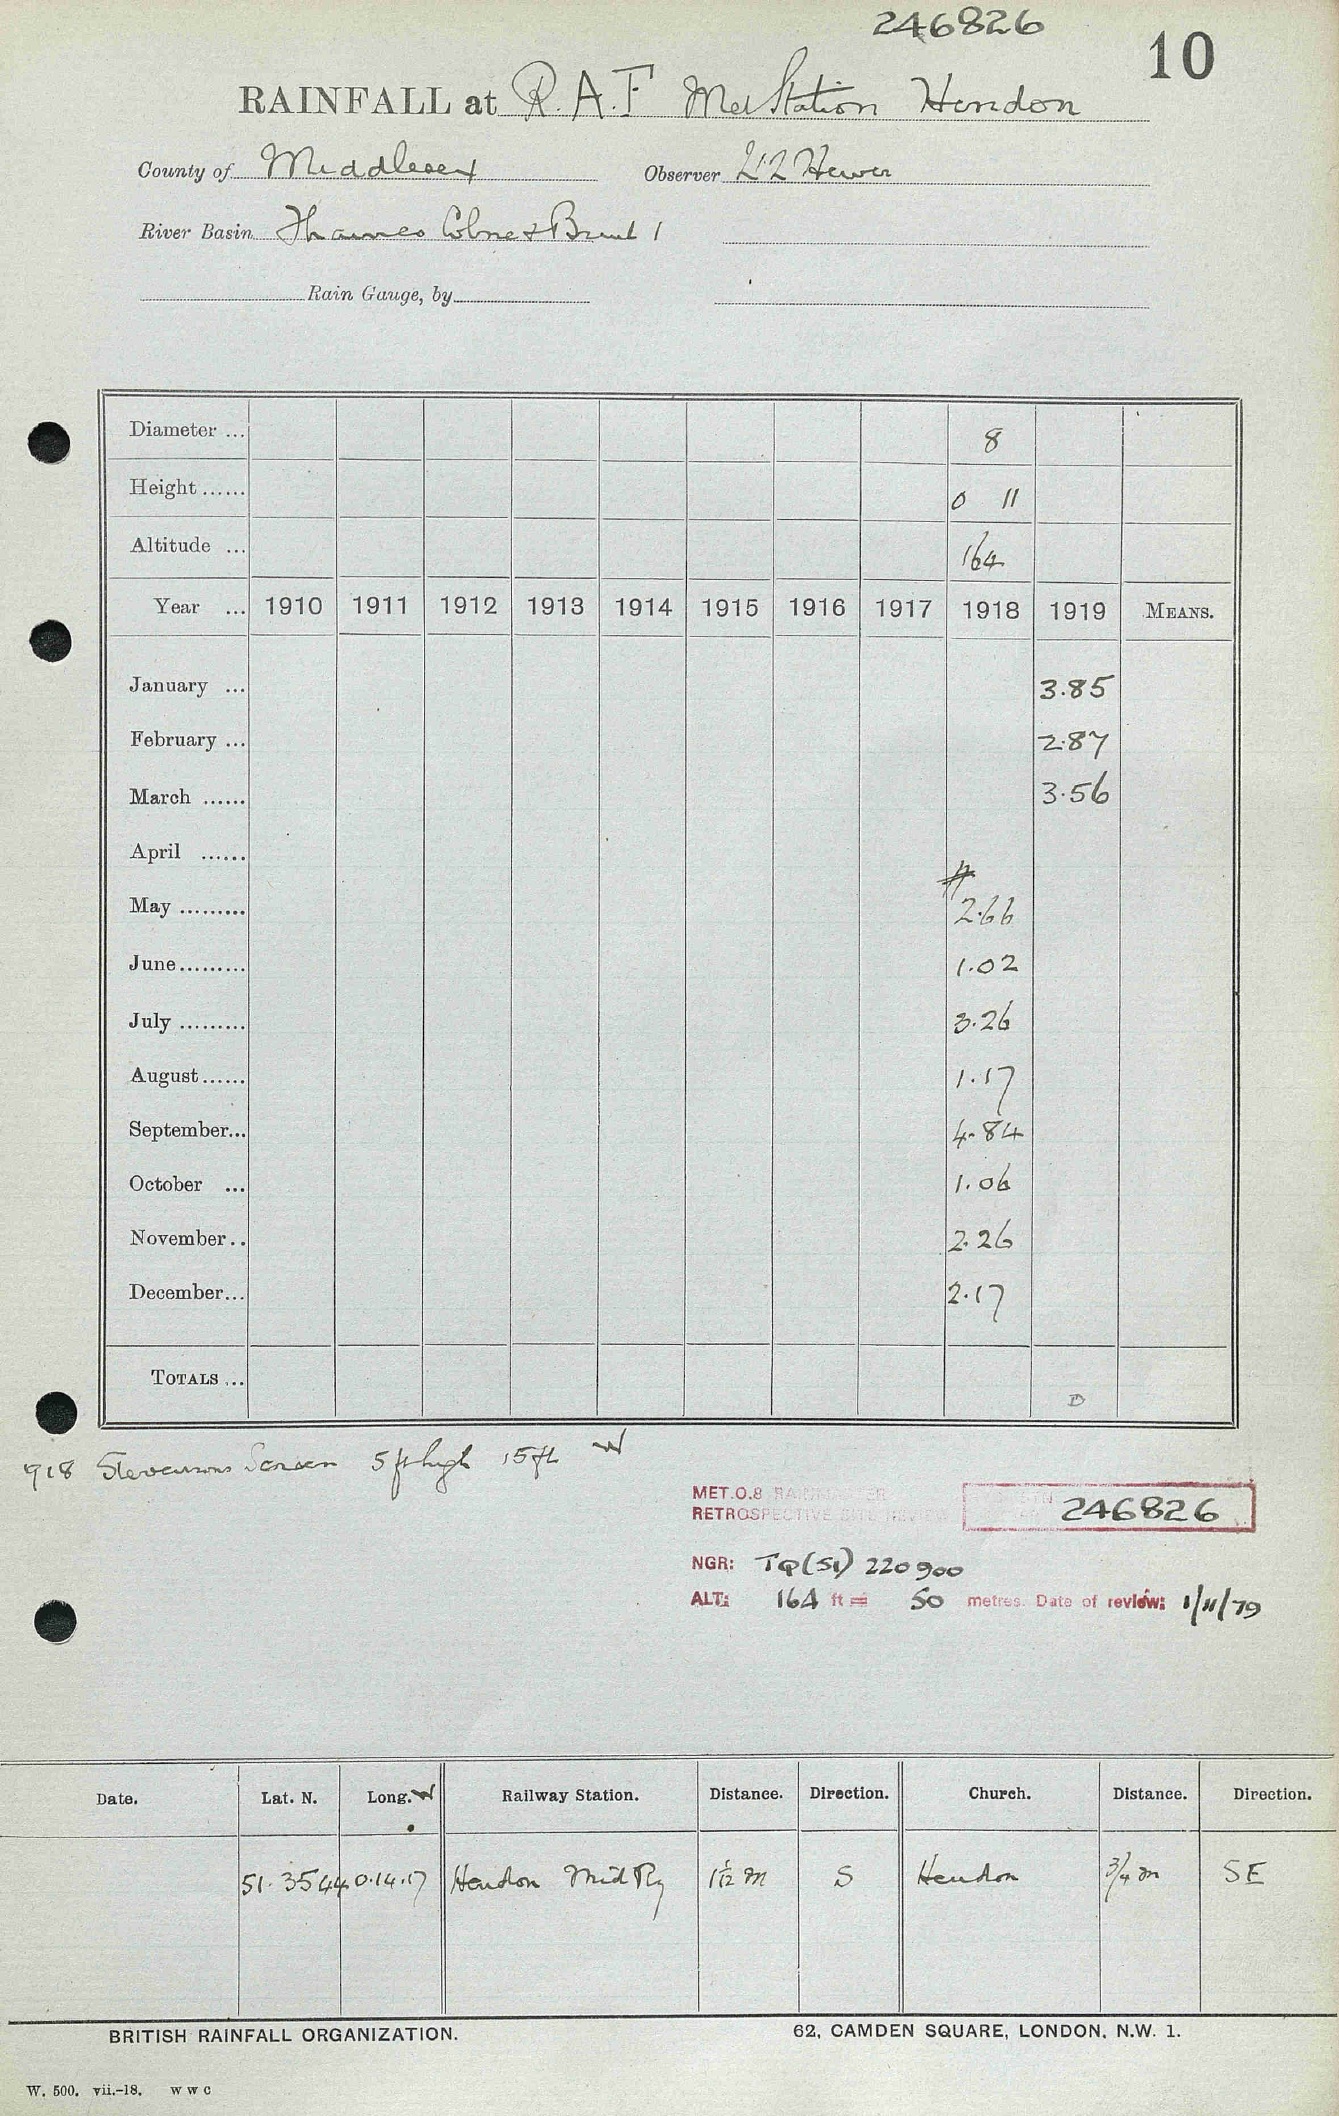 246826
10
RAINFALL at R.A.F Met Station Hendon
County of Middlesex Observer Hewer
River Basin Thames Colne & Brent 1
Rain Gauge, by
Diameter ... 8
Height ...... 0 11
Altitude ... 164
Year ... 1910 1911 1912 1913 1914 1915 1916 1917 1918 1919 MEANS.
January ... 3.85
February ... 2.87
March ...... 3.56
April ......
May ......... 2.66
June ......... 1.02
July ......... 3.26
August ...... 1.17
September... 4.84
October ... 1.06
November.. 2.26
December... 2.17
TOTALS ...
D
918 Stevensons Screen 5 ft high 15 ft W
MET.O.8 RAINMASTER
RETROSPECTIVE SITE REVIEW 246826
NGR: TQ(51) 220900
ALT: 164 ft = 50 metres. Date of review: 1/11/79
Date. Lat. N. Long. W Railway Station. Distance. Direction. Church. Distance. Direction.
51.3544 0.14.17 Hendon Mid Ry 1½ m S Hendon 3/4 m SE
BRITISH RAINFALL ORGANIZATION. 62, CAMDEN SQUARE, LONDON, N.W. 1.
W. 500. vii.-18. W W C